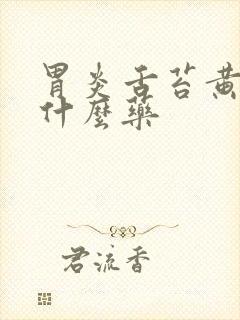 胃炎舌苔黄
什麽藥
君流香